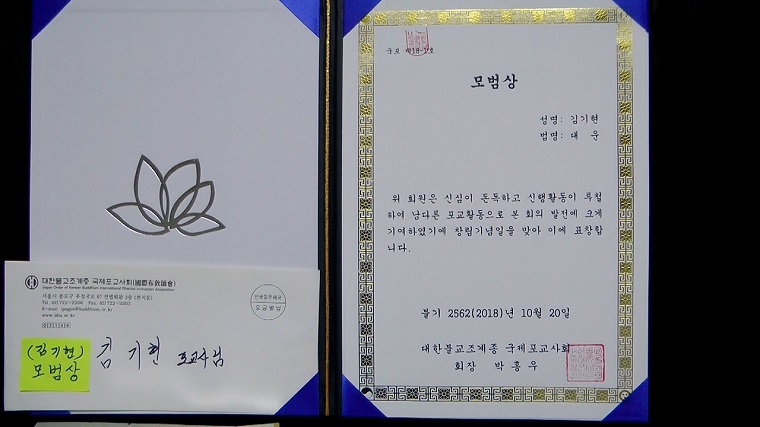 모범상
성명: 김기현
법명: 대 운
위 회원은 신심이 돈독하고 신행활동이 투철
하여 남다른 포교활동으로 본 회의 발전에 크게
기여하였기에 창립기념일을 맞아 이에 표창합
니다.
불기 2562(2018)년 10월 20일
대한불교조계종 국제포교사회
회장 박 흥 우
대한불교조계종 국제포교사회(國際布敎師會)
Jogye Order of Korean Buddhism International Dharma Instructors Association
서울시 종로구 우정국로 67 전법회관 3층 (견지동)
Tel 02)722-2206 Fax 02)722-2202
요금별납
(김기현)
모범상
김 기현 포교사님